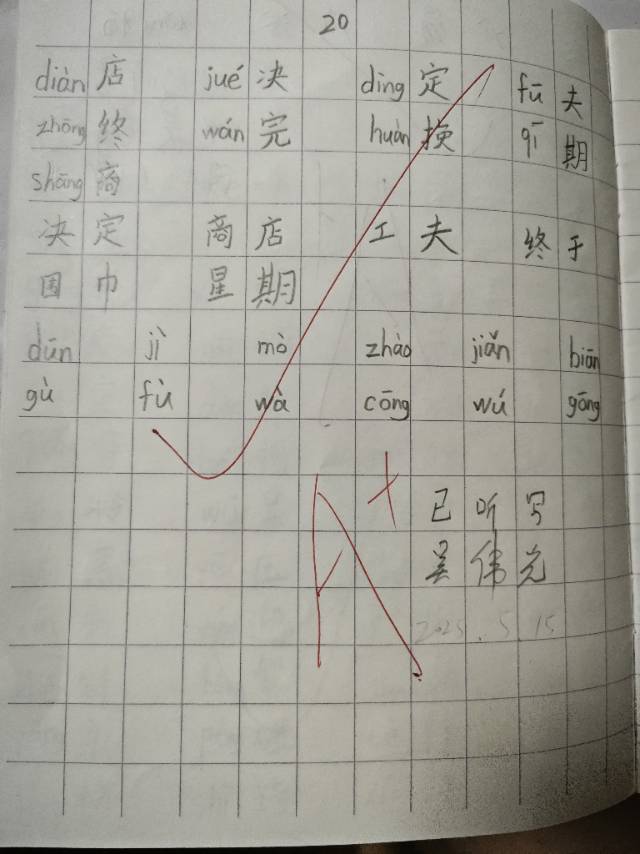 20
diàn 店 jué 决 dìng 定 fū 夫
zhōng 终 wán 完 huàn 换 qī 期
shāng 商
决定 商店 工夫 终于
围巾 星期
dūn jì mò zhào jiǎn biān
gù fù wà cōng wú gōng
A+
已听写
吴伟光
2025.5.15